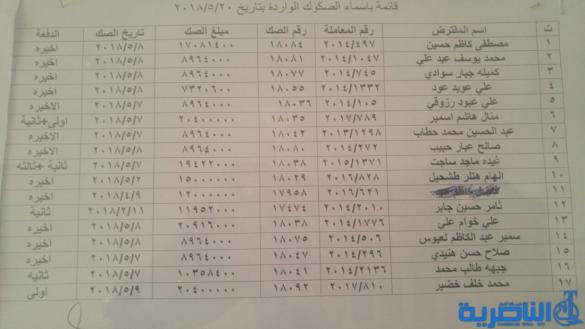 قائمة باسماء الصكوك الواردة بتاريخ ٢٠١٨/٥/٢٠
ت اسم المقترض رقم المعاملة رقم الصك مبلغ الصك تاريخ الصك الدفعة
١ مصطفى كاظم حسين ٢٠١٤/٤٩٧ ١٨٠٨٤ ١٧٠٨١٤٠٠ ٢٠١٨/٥/٨ اخيره
٢ محمد يوسف عبد علي ٢٠١٤/١٠٤٧ ١٨٠٨١ ٨٩٦٤٠٠٠ ٢٠١٨/٥/٨ اخيره
٣ كميله جبار سوادي ٢٠١٤/٧٤٥ ١٨٠٧٧ ٨٩٦٤٠٠٠ ٢٠١٨/٥/٨ اخيره
٤ علي عويد عود ٢٠١٤/١٣٣٢ ١٨٠٥٥ ٧٣٢٠٦٠٠ ٢٠١٨/٥/٨ اخيره
٥ علي عبود رزوقي ٢٠١٤/١٠٥ ١٨٠٣٦ ٨٩٦٤٠٠٠ ٢٠١٨/٥/٧ الاخيره
٦ منال هاشم اسمير ٢٠١٧/٧٨٩ ١٨٠٣٥ ٢٠٤٠٠٠٠٠ ٢٠١٨/٥/٧ اولى+ثانية
٧ عبد الحسين محمد حطاب ٢٠١٣/١٢٩٨ ١٨٠٤٢ ٨٩٦٤٠٠٠ ٢٠١٨/٥/٧ الاخيره
٨ صالح عبار حبيب ٢٠١٤/٢٧٢ ١٨٠٨٠ ٨٩٦٤٠٠٠ ٢٠١٨/٥/٨ الاخيره
٩ غيده ماجد ساجت ٢٠١٥/١٣٧١ ١٨٠٣٨ ١٩٤٢٢٠٠٠ ٢٠١٨/٥/٧ ثانية +ثالثه
١٠ الهام هتلر طشحيل ٢٠١٦/٨٢٨ ١٨٠٢٩ ١٥٠٠٠٠٠٠ ٢٠١٨/٥/٢ اخيره
١١ ٢٠١٦/٦٢١ ١٧٩٥٨ ١٢٠٠٠٠٠٠ ٢٠١٨/٤/٩ اخيره
١٢ ثامر حسين جابر ٢٠١٤/٢٠١٠ ١٧٤٧٤ ١١٩٥٢٠٠٠ ٢٠١٨/٢/١١ ثانية
١٣ علي خوام علي ٢٠١٤/١٧٧٦ ١٨٠٣٨ ٢٠٩١٦٠٠٠ ٢٠١٨/٥/٨ اخيره
١٤ سمير عبد الكاظم لعيوس ٢٠١٤/٥٠٦ ١٨٠٧٥ ٨٩٦٤٠٠٠ ٢٠١٨/٥/٨ اخيره
١٥ صلاح حسن هنيدي ٢٠١٤/٢٩٥ ١٨٠٤٧ ٨٩٦٤٠٠٠ ٢٠١٨/٥/٧ اخيره
١٦ جبهه طالب محمد ٢٠١٤/٢١٣٦ ١٨٠٤١ ١٠٣٥٨٤٠٠ ٢٠١٨/٥/٧ ثانيه
١٧ محمد خلف خضير ٢٠١٧/٨١٠ ١٨٠٩٢ ٢٠٤٠٠٠٠٠ ٢٠١٨/٥/٩ اولى
الناصرية